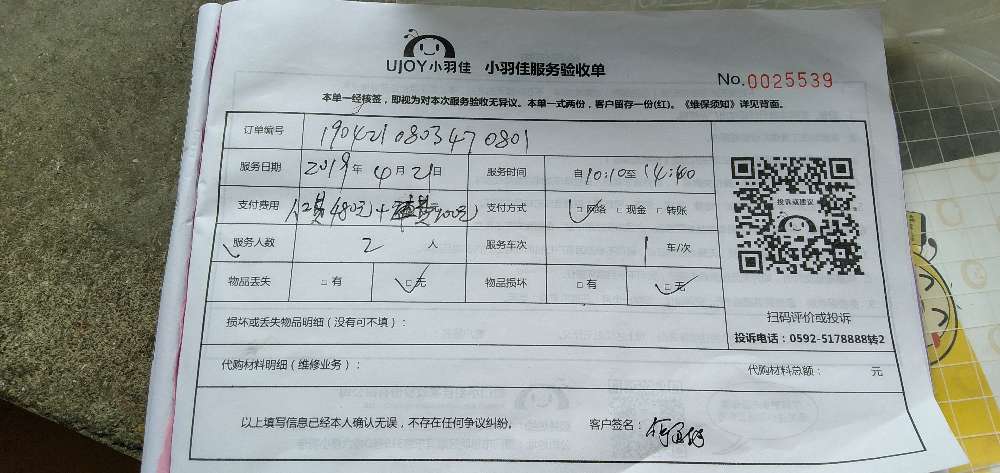 UJOY小羽佳 小羽佳服务验收单
No.0025539
本单一经核签,即视为对本次服务验收无异议。本单一式两份,客户留存一份(红)。《维保须知》详见背面。
订单编号 1904210803470801
服务日期 2019年4月21日 服务时间 自10:10至14:40
支付费用 480元+ 100元 支付方式 □网络 □现金 □转账
服务人数 2 人 服务车次 1 车/次
物品丢失 □有 □无 物品损坏 □有 □无
投诉或建议
扫码评价或投诉
投诉电话:0592-5178888转2
损坏或丢失物品明细(没有可不填):
代购材料明细(维修业务): 代购材料总额: 元
以上填写信息已经本人确认无误,不存在任何争议纠纷。 客户签名: